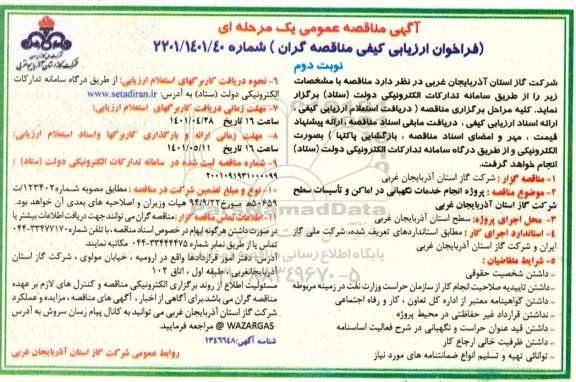 آگهی مناقصه عمومی یک مرحله ای
(فراخوان ارزیابی کیفی مناقصه گران ) شماره ۲۲۰۱/۱۴۰۱/۴۰
نوبت دوم
شرکت گاز استان آذربایجان غربی در نظر دارد مناقصه با مشخصات
زیر را از طریق سامانه تدارکات الکترونیکی دولت (ستاد) برگزار
نماید. کلیه مراحل برگزاری مناقصه ( دریافت استعلام ارزیابی کیفی ،
ارائه اسناد ارزیابی کیفی ، دریافت مابقی اسناد مناقصه ،ارائه پیشنهاد
قیمت ، مهر و امضای اسناد مناقصه ، بازگشایی پاکتها ) بصورت
الکترونیکی و از طریق درگاه سامانه تدارکات الکترونیکی دولت (ستاد)
انجام خواهد گرفت.
۱- مناقصه گزار : شرکت گاز استان آذربایجان غربی
۲- موضوع مناقصه : پروژه انجام خدمات نگهبانی در اماکن و تأسیسات سطح
شرکت گاز استان آذربایجان غربی
۳- محل اجرای پروژه: سطح استان آذربایجان غربی
۴- استاندارد اجرای کار : مطابق استانداردهای تعریف شده، شرکت ملی گاز
ایران و شرکت گاز استان آذربایجان غربی
۵- شرایط متقاضیان :
- داشتن شخصیت حقوقی
- داشتن تاییدیه صلاحیت انجام کار از سازمان حراست وزارت نفت در زمینه مربوطه
- داشتن گواهینامه معتبر از اداره کل تعاون ، کار و رفاه اجتماعی
- نداشتن قرارداد غیر حفاظتی در محیط پروژه
- داشتن قید عنوان حراست و نگهبانی در شرح فعالیت اساسنامه
- داشتن ظرفیت خالی ارجاع کار
- توانائی تهیه و تسلیم انواع ضمانتنامه های مورد نیاز
۶- نحوه دریافت کاربرگهای استعلام ارزیابی: از طریق درگاه سامانه تدارکات
الکترونیکی دولت (ستاد) به آدرس: www.setadiran.ir
۷- مهلت زمانی دریافت کاربرگهای استعلام ارزیابی:
ساعت ۱۶ تاریخ ۱۴۰۱/۰۴/۲۸
۸- مهلت زمانی ارائه و بارگذاری کاربرگها واسناد استعلام ارزیابی:
ساعت ۱۶ تاریخ ۱۴۰۱/۰۵/۱۱
۹- شماره مناقصه ثبت شده در سامانه تدارکات الکترونیکی دولت (ستاد) :
۲۰۰۱۰۹۱۹۳۱۰۰۰۰۹۹
۱۰- نوع و مبلغ تضمین شرکت در مناقصه : مطابق مصوبه شماره۱۲۳۴۰۲/ت
۵۰۶۵۹ه مورخ ۹۴/۹/۲۲ هیات وزیران و اصلاحیه های بعدی آن خواهد بود.
۱۱- اطلاعات تماس مناقصه گزار: مناقصه گران می توانند جهت دریافت اطلاعات بیشتر یا
در صورت داشتن هرگونه ابهام در خصوص اسناد مناقصه، با تلفن شماره ۳۳۴۷۷۱۷۰-۰۴۴
تماس یا از طریق نمابر شماره ۳۳۴۴۴۴۷۵-۰۴۴ مکاتبه نمایند.
آدرس: دفتر امور قراردادها واقع در ارومیه ، خیابان مولوی ، شرکت گاز استان
آذربایجانغربی ، طبقه اول ، اتاق ۱۰۲
مسئولیت اطلاع از روند برگزاری الکترونیکی مناقصه و کنترل های لازم بر عهده
مناقصه گران می باشد.برای آگاهی از اخبار ، آگهی های مناقصه ، مزایده و عملکرد
شرکت گاز استان آذربایجان غربی می توانید به کانال پیام رسان سروش به آدرس
WAZARGAS @ مراجعه فرمایید.
شناسه آگهی:۱۳۴۶۶۴۸
روابط عمومی شرکت گاز استان آذربایجان غربی